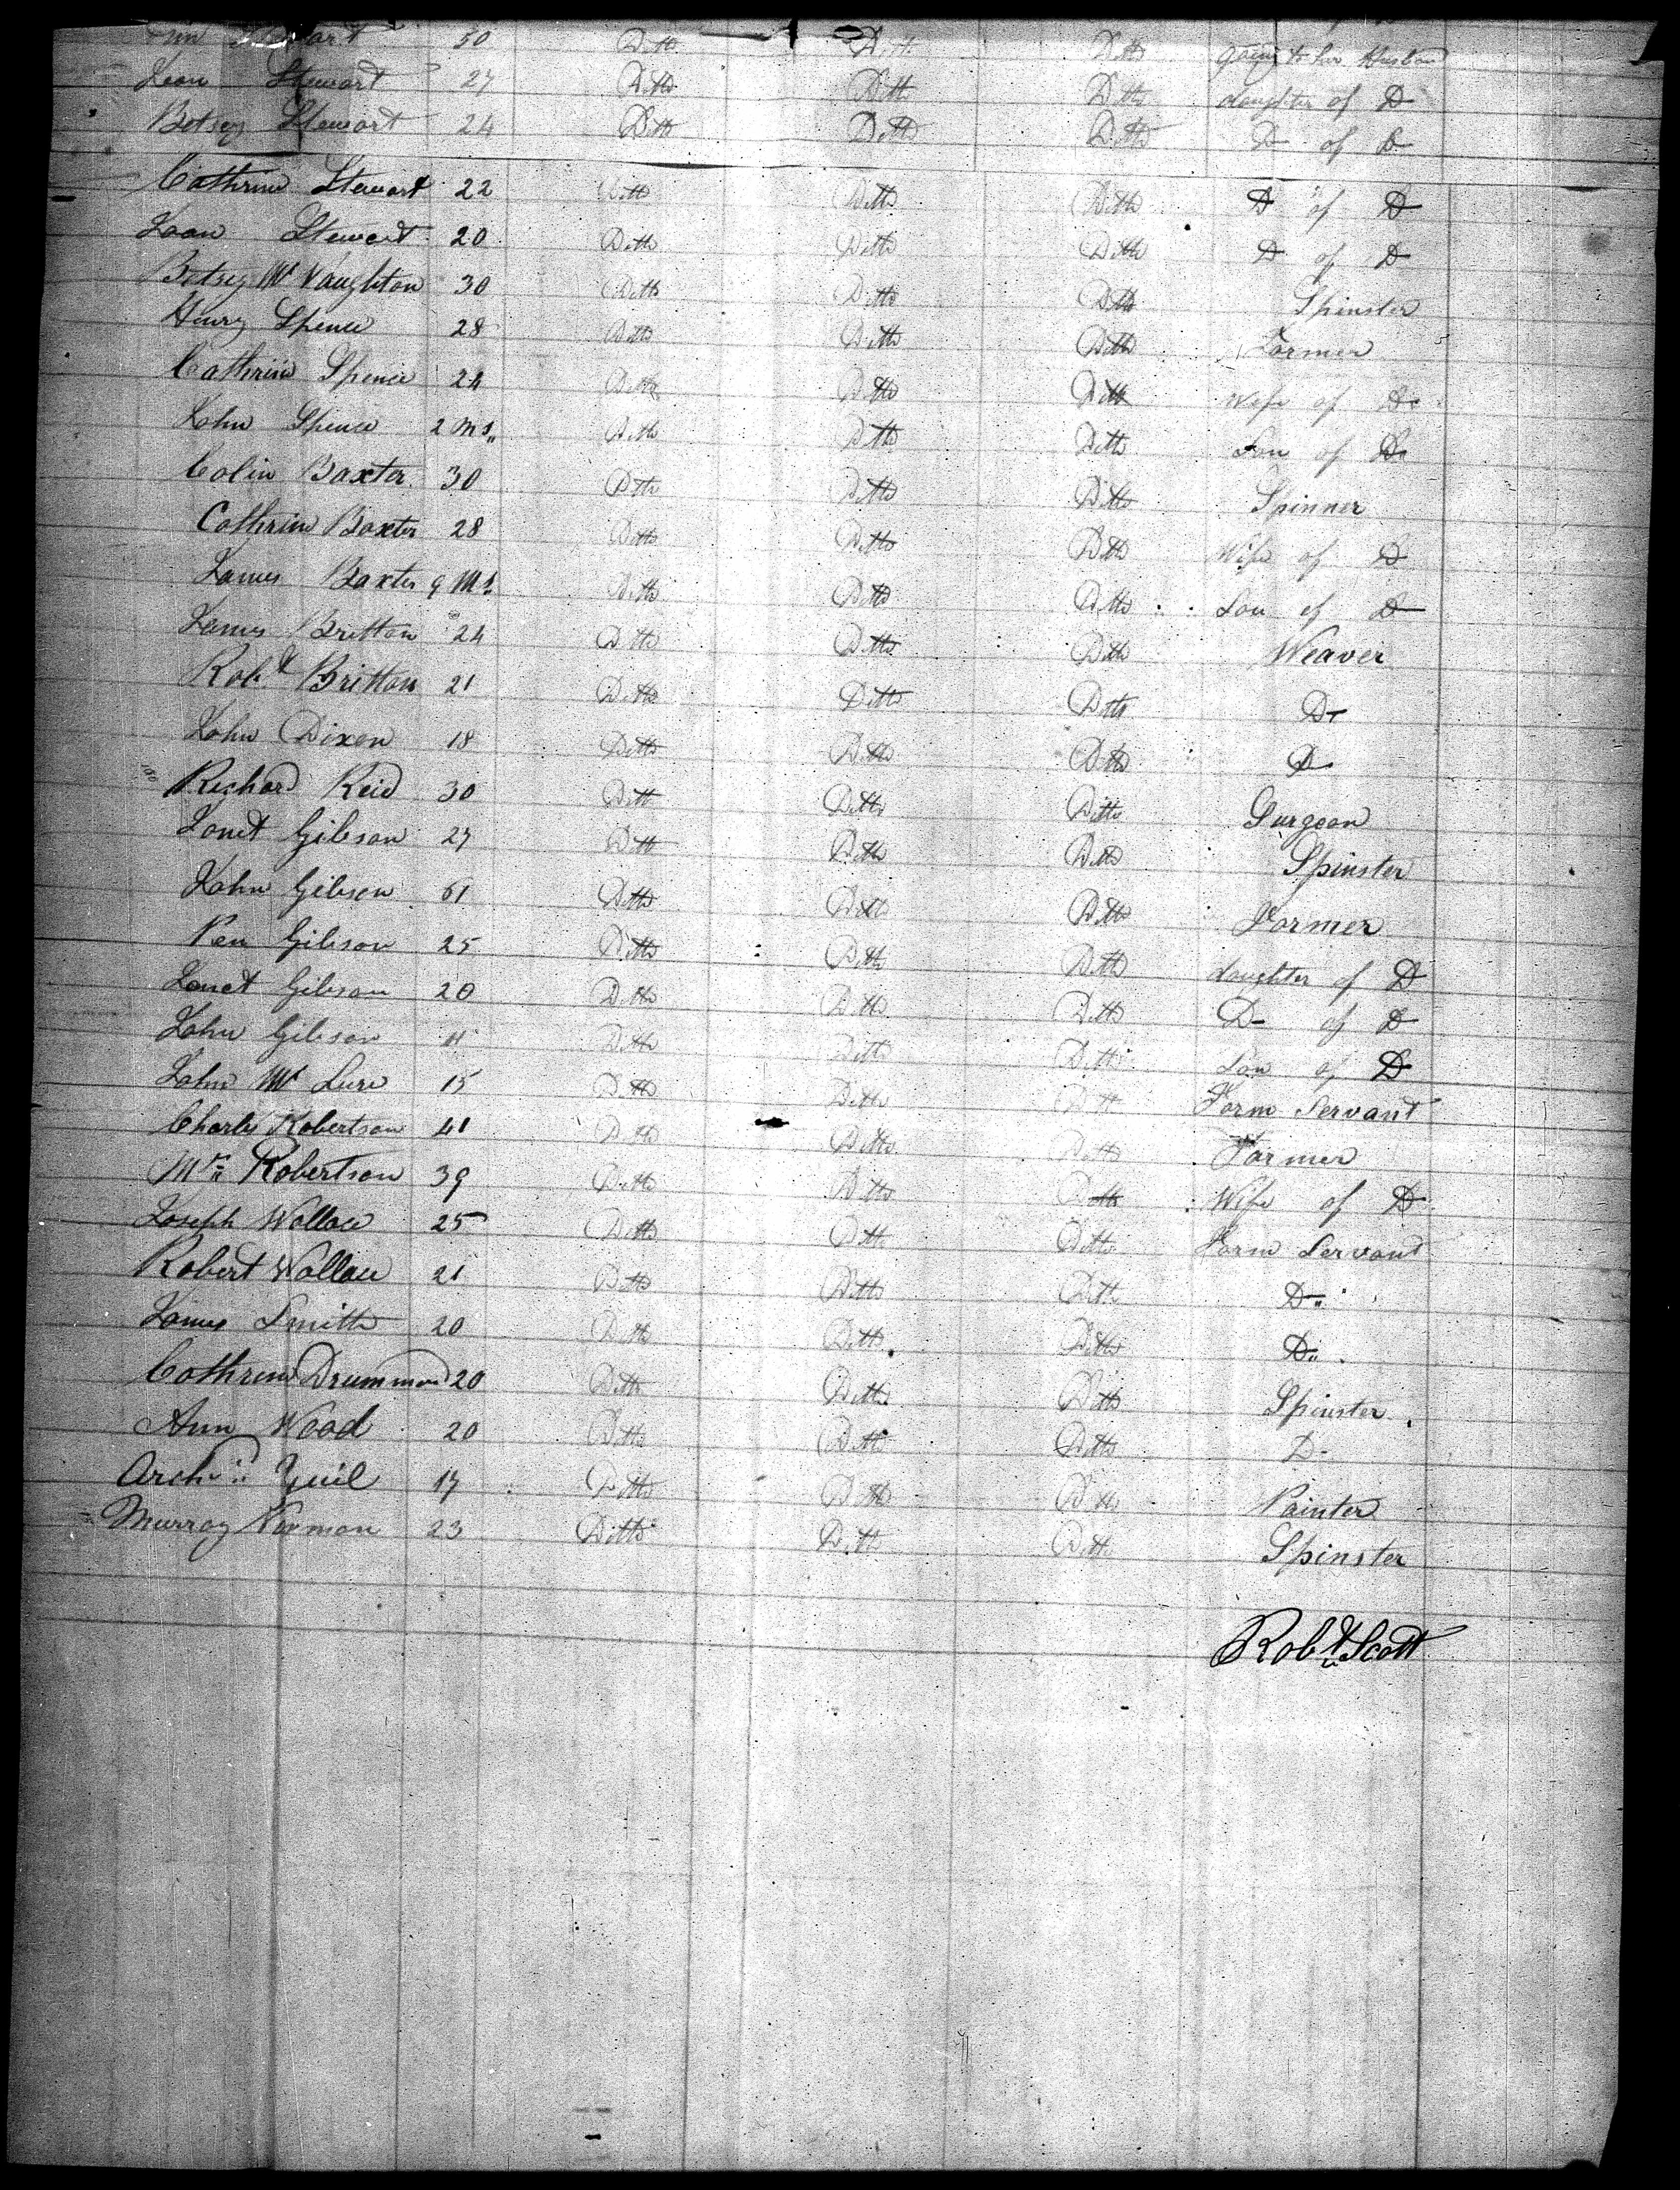 Ann Stewart 50 Ditto Ditto Ditto going to her Husban
Jean Stewart 27 Ditto Ditto Ditto daughter of Do
Betsey Stewart 24 Ditto Ditto Ditto Do of Do
Cathrine Stewart 22 Ditto Ditto Ditto Do of Do
Stewart 20 Ditto Ditto Ditto Do of Do
Betsey Mc Naughton 30 Ditto Ditto Ditto Spinster
Henry Spence 28 Ditto Ditto Ditto Farmer
Cathrine Spence 24 Ditto Ditto Ditto Wife of Do
John Spence 2 Ms Ditto Ditto Ditto Son of Do
Colin Baxter 30 Ditto Ditto Ditto Spinner
Cathrine Baxter 28 Ditto Ditto Ditto Wife of Do
James Baxter 9 Ms Ditto Ditto Ditto Son of Do
James Britton 24 Ditto Ditto Ditto Weaver
Robt Britton 21 Ditto Ditto Ditto Do
John Dixon 18 Ditto Ditto Ditto Do
Richard Reid 30 Ditto Ditto Ditto Surgeon
Janet Gibson 27 Ditto Ditto Ditto Spinster
John Gibson 61 Ditto Ditto Ditto Farmer
Gibson 25 Ditto Ditto Ditto daughter of Do
Janet Gibson 20 Ditto Ditto Ditto Do of Do
John Gibson 11 Ditto Ditto Ditto Son of Do
John Mc Lure 15 Ditto Ditto Ditto Farm Servant
Charles Robertson 41 Ditto Ditto Ditto Farmer
Mrs Robertson 39 Ditto Ditto Ditto Wife of Do
Joseph Wallace 25 Ditto Ditto Ditto Farm Servant
Robert Wallace 21 Ditto Ditto Ditto Do
James Smith 20 Ditto Ditto Ditto Do
Cathrine Drummond 20 Ditto Ditto Ditto Spinster
Ann Wood 20 Ditto Ditto Ditto Do
Archd Yuil 17 Ditto Ditto Ditto Painter
Murray 23 Ditto Ditto Ditto Spinster
Robt Scott